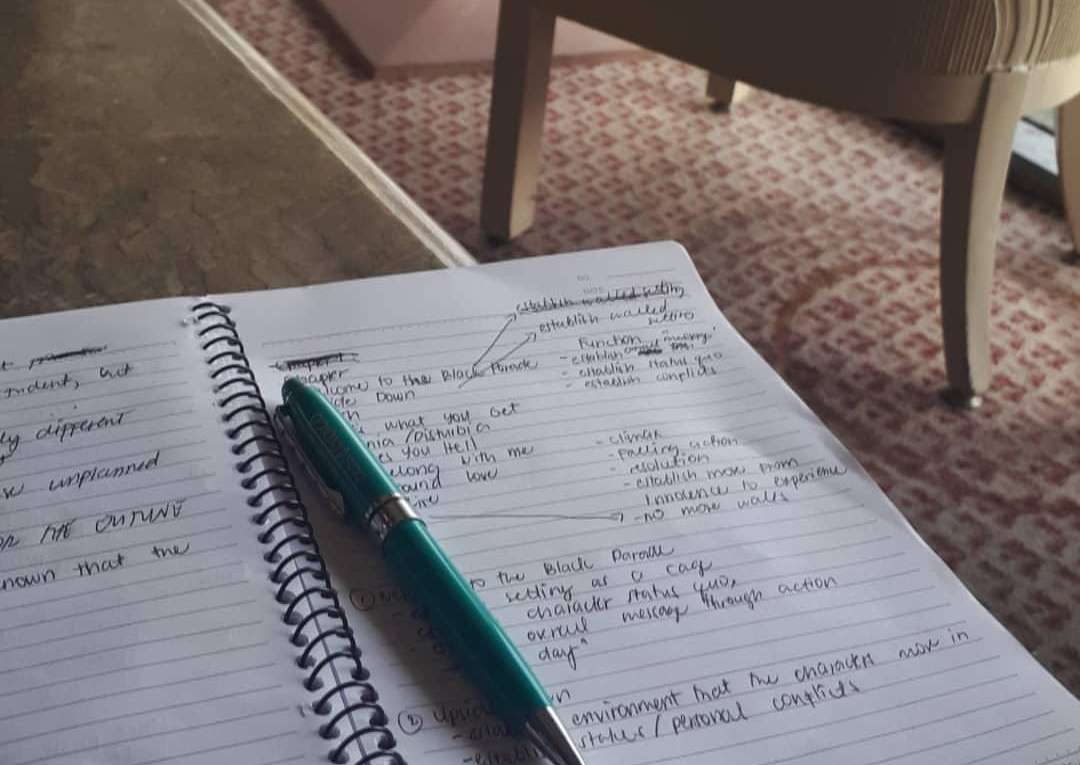 ndent, but
ly different
unplanned
OR THE OUTLINE
nown that the
NO.
establish walled setting
establish walled
setting
Function
- establish message
Chapter
Welcome to the Black Parade
- establish status quo
Down
- establish conflicts
what you Get
nia / Disturbia
es you Hell
- climax
elong with me
- Falling action
ound love
- resolution
- establish move from
Innocence to experience
- no more walls
① to the Black Parade
setting as a cage
character status quo,
overall message through action
day"
② Upsid wn
environment that the characters move in
- establi status / personal conflicts